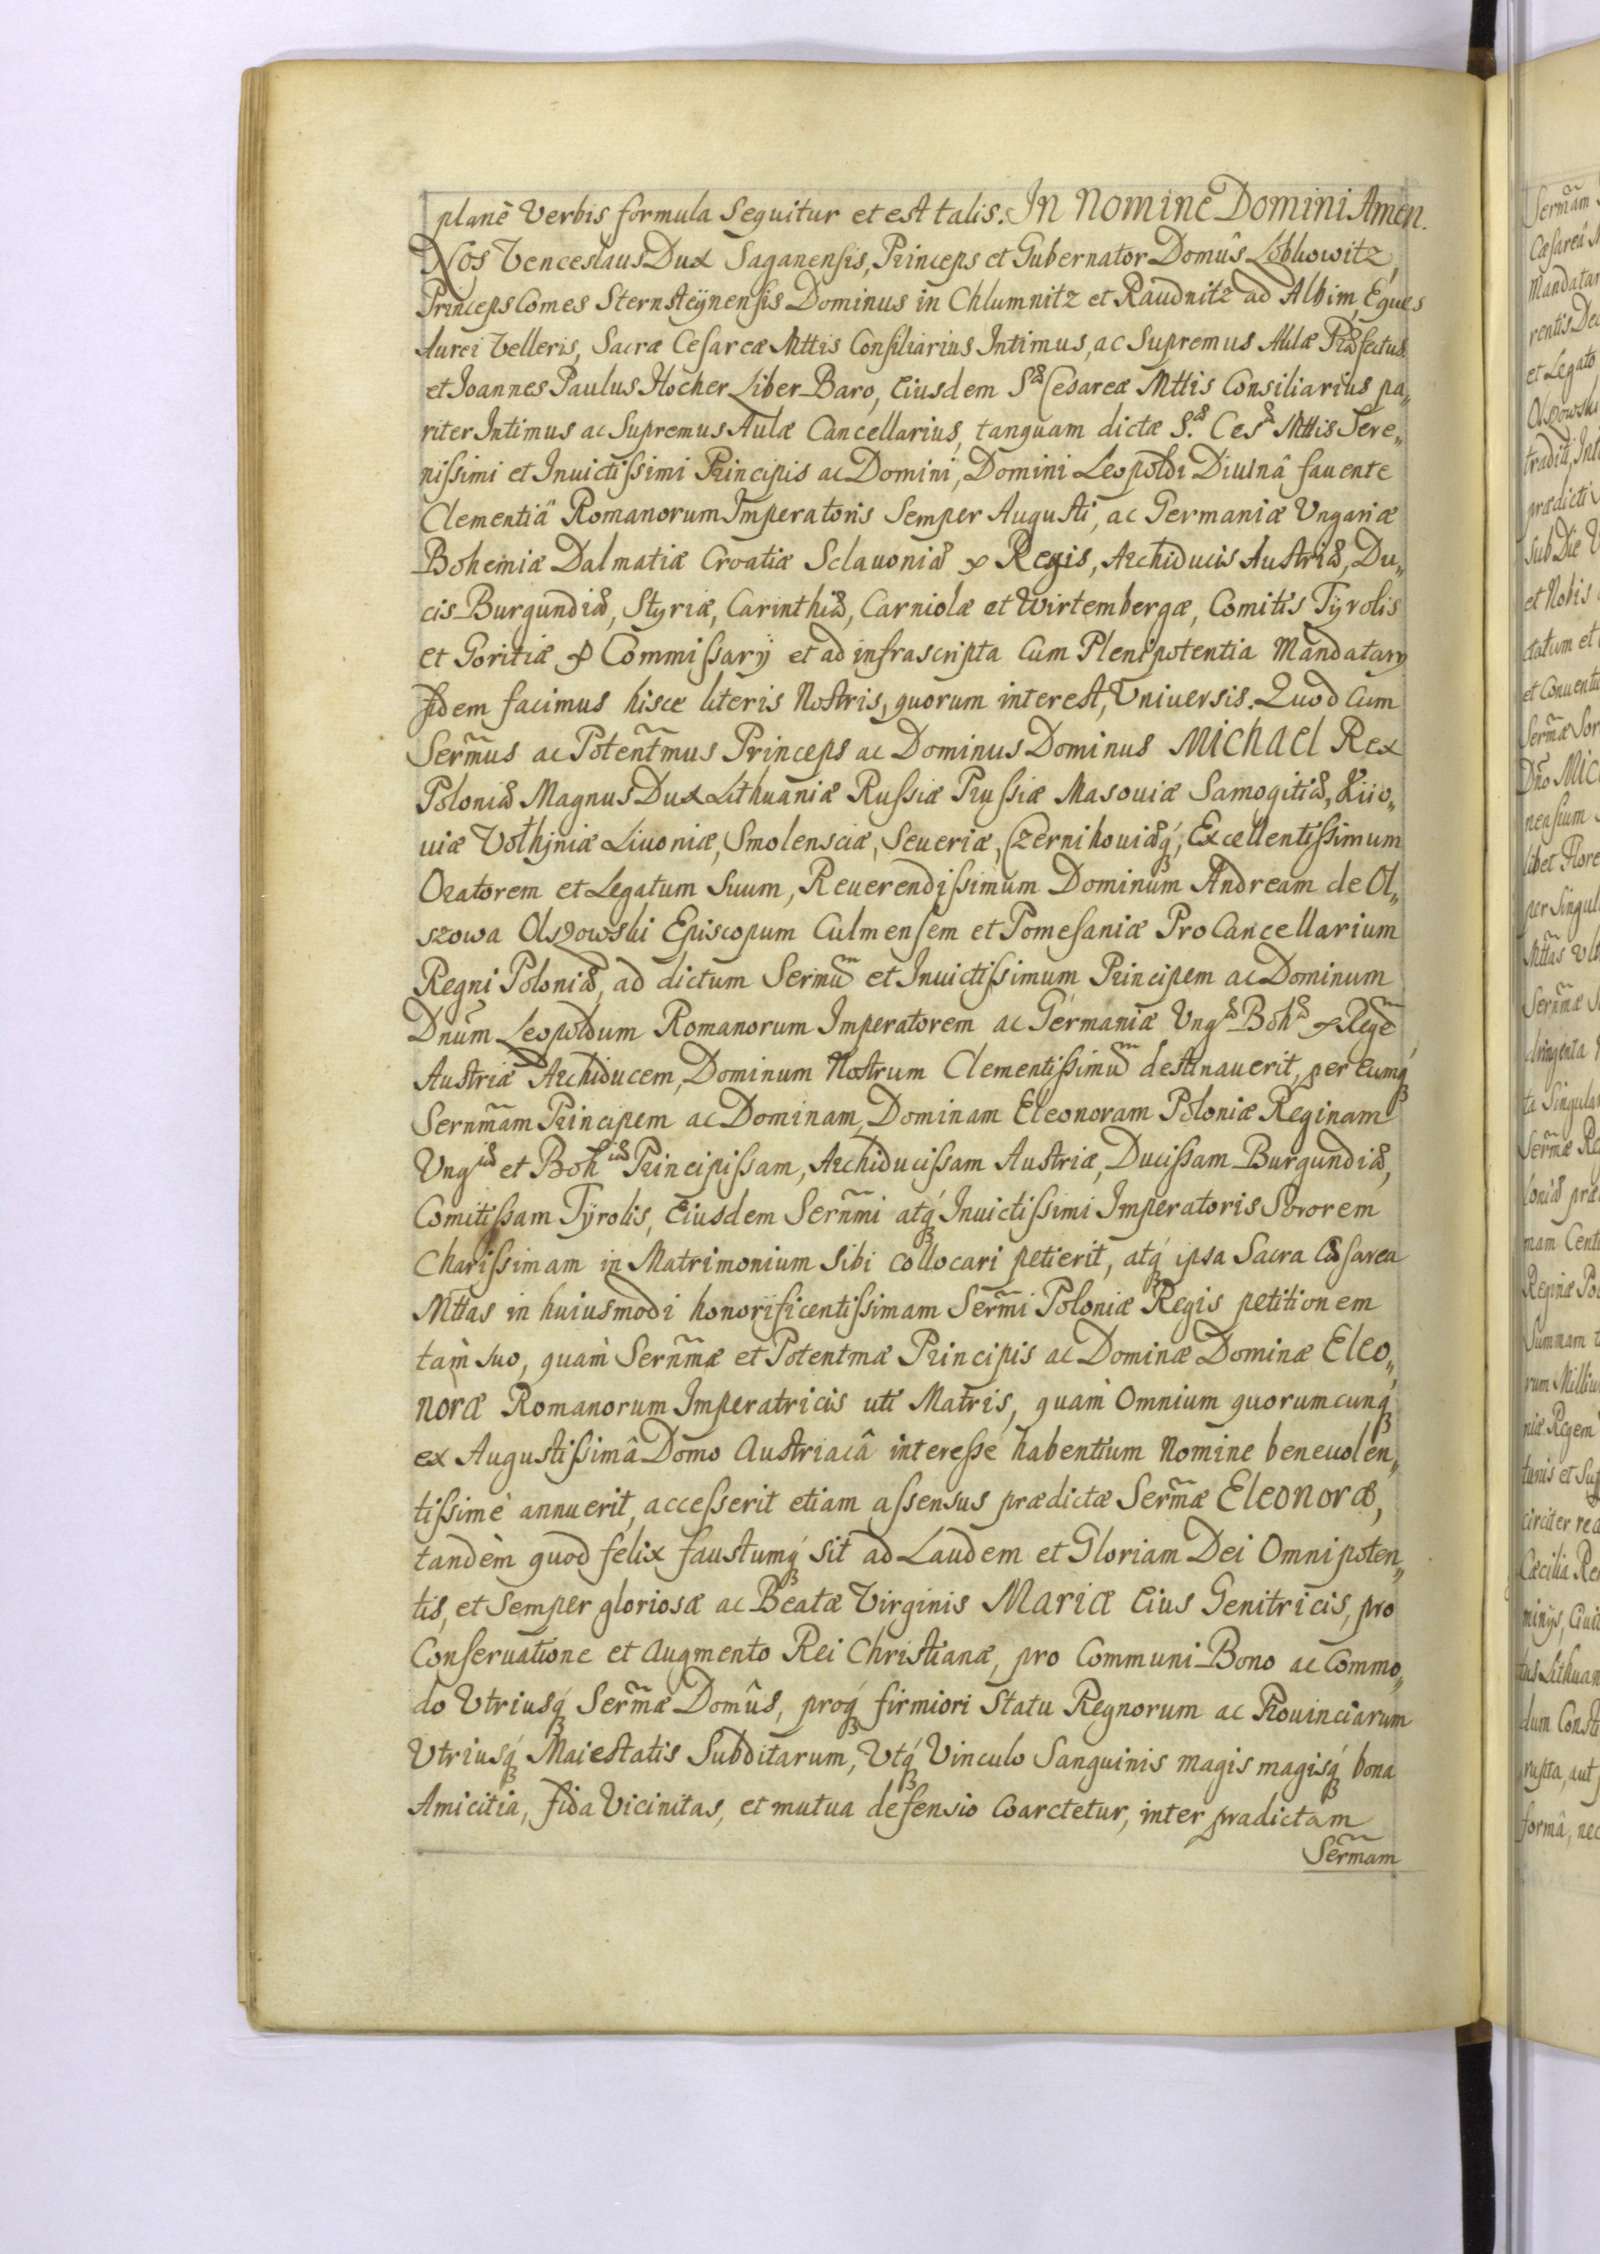 planè Verbis formula Sequitur et est talis. In Nomine Domini Amen.
Nos Venceslaus Dux Saganensis, Princeps et Gubernator Domûs Lobkowitz,
Princeps Comes Sternsteÿnensis Dominus in Chlumnitz et Raudnitz ad Albim, Eques
Aurei Velleris, Sacræ Cesareæ Mttis Consiliarius Intimus, ac Supremus Aulæ Præfectus
et Ioannes Paulus Hocher Liber Baro, Eiusdem Sæ Cesareæ Mttis Consiliarius pa„
riter Intimus ac Supremus Aulæ Cancellarius, tanquam dictæ S.æ Cesæ Mttis Sere„
nissimi et Inuictissimi Principis ac Domini, Domini Leopoldi Diuinâ fauente
Clementiâ Romanorum Imperatoris Semper Augusti, ac Germaniæ Vngariæ
Bohemiæ Dalmatiæ Croatiæ Sclauoniæ & Regis, Archiducis Austriæ, Du„
cis Burgundiæ, Styriæ, Carinthiæ, Carniolæ et Wirtembergæ, Comitis Tÿrolis
et Goritiæ & Commissarÿ et ad infrascripta Cum Plenipotentia Mandatarÿ
fidem facimus hisce literis Nostris, quorum interest, Vniuersis. Quod Cum
Serm̃us ac Potent̃mus Princeps ac Dominus Dominus Michael Rex
Poloniæ Magnus Dux Lithuaniæ Russiæ Prussiæ Masouiæ Samogitiæ, Kiio„
uiæ Volhÿniæ Liuoniæ, Smolensciæ, Seueriæ, Czernihouiæq́, Excellentissimum
Oratorem et Legatum Suum, Reuerendissimum Dominum Andream de Ol„
szowa Olszowski Episcopum Culmensem et Pomesaniæ ProCancellarium
Regni Poloniæ, ad dictum Sermũ et Inuictissimum Principem ac Dominum
Dnũm Leopoldum Romanorum Imperatorem ac Germaniæ Vngæ Bohæ & Regẽ
Austriæ Archiducem, Dominum Nostrum Clementissimũ destinauerit, per Eumq́
Sernm̃am Principem ac Dominam, Dominam Eleonoram Poloniæ Reginam
Vngiæ et Bohiæ Principissam, Archiducissam Austriæ, Ducissam Burgundiæ,
Comitissam Tÿrolis, Eiusdem Sernm̃i atq́ Inuictissimi Imperatoris Sororem
Charissimam in Matrimonium Sibi Collocari petierit, atq́ ipsa Sacra Cæsarea
Mttas in huiusmodi honorificentissimam Serm̃i Poloniæ Regis petitionem
tam̀ suo, quam̀ Sernm̃æ et Potentmæ Principis ac Dominæ Dominæ Eleo„
noræ Romanorum Imperatricis uti Matris, quam̀ Omnium quorumcunq́
ex Augustissimâ Domo Austriacâ interesse habentium Nomine beneuolen„
tissimè annuerit, accesserit etiam assensus prædictæ Serm̃æ Eleonoræ,
tandèm quod felix faustumq́ sit ad Laudem et Gloriam Dei Omnipoten„
tis, et Semper gloriosæ ac Beatæ Virginis Mariæ Eius Genitricis, pro
Conseruatione et Augmento Rei Christianæ, pro Communi Bono ac Commo„
do Vtriusq́ Serm̃æ Domûs, proq́ firmiori Statu Regnorum ac Prouinciarum
Vtriusq́ Maiestatis Subditarum, Vtq́ Vinculo Sanguinis magis magisq́ bona
Amicitia, fida Vicinitas, et mutua defensio Coarctetur, inter prædictam
Serm̃am